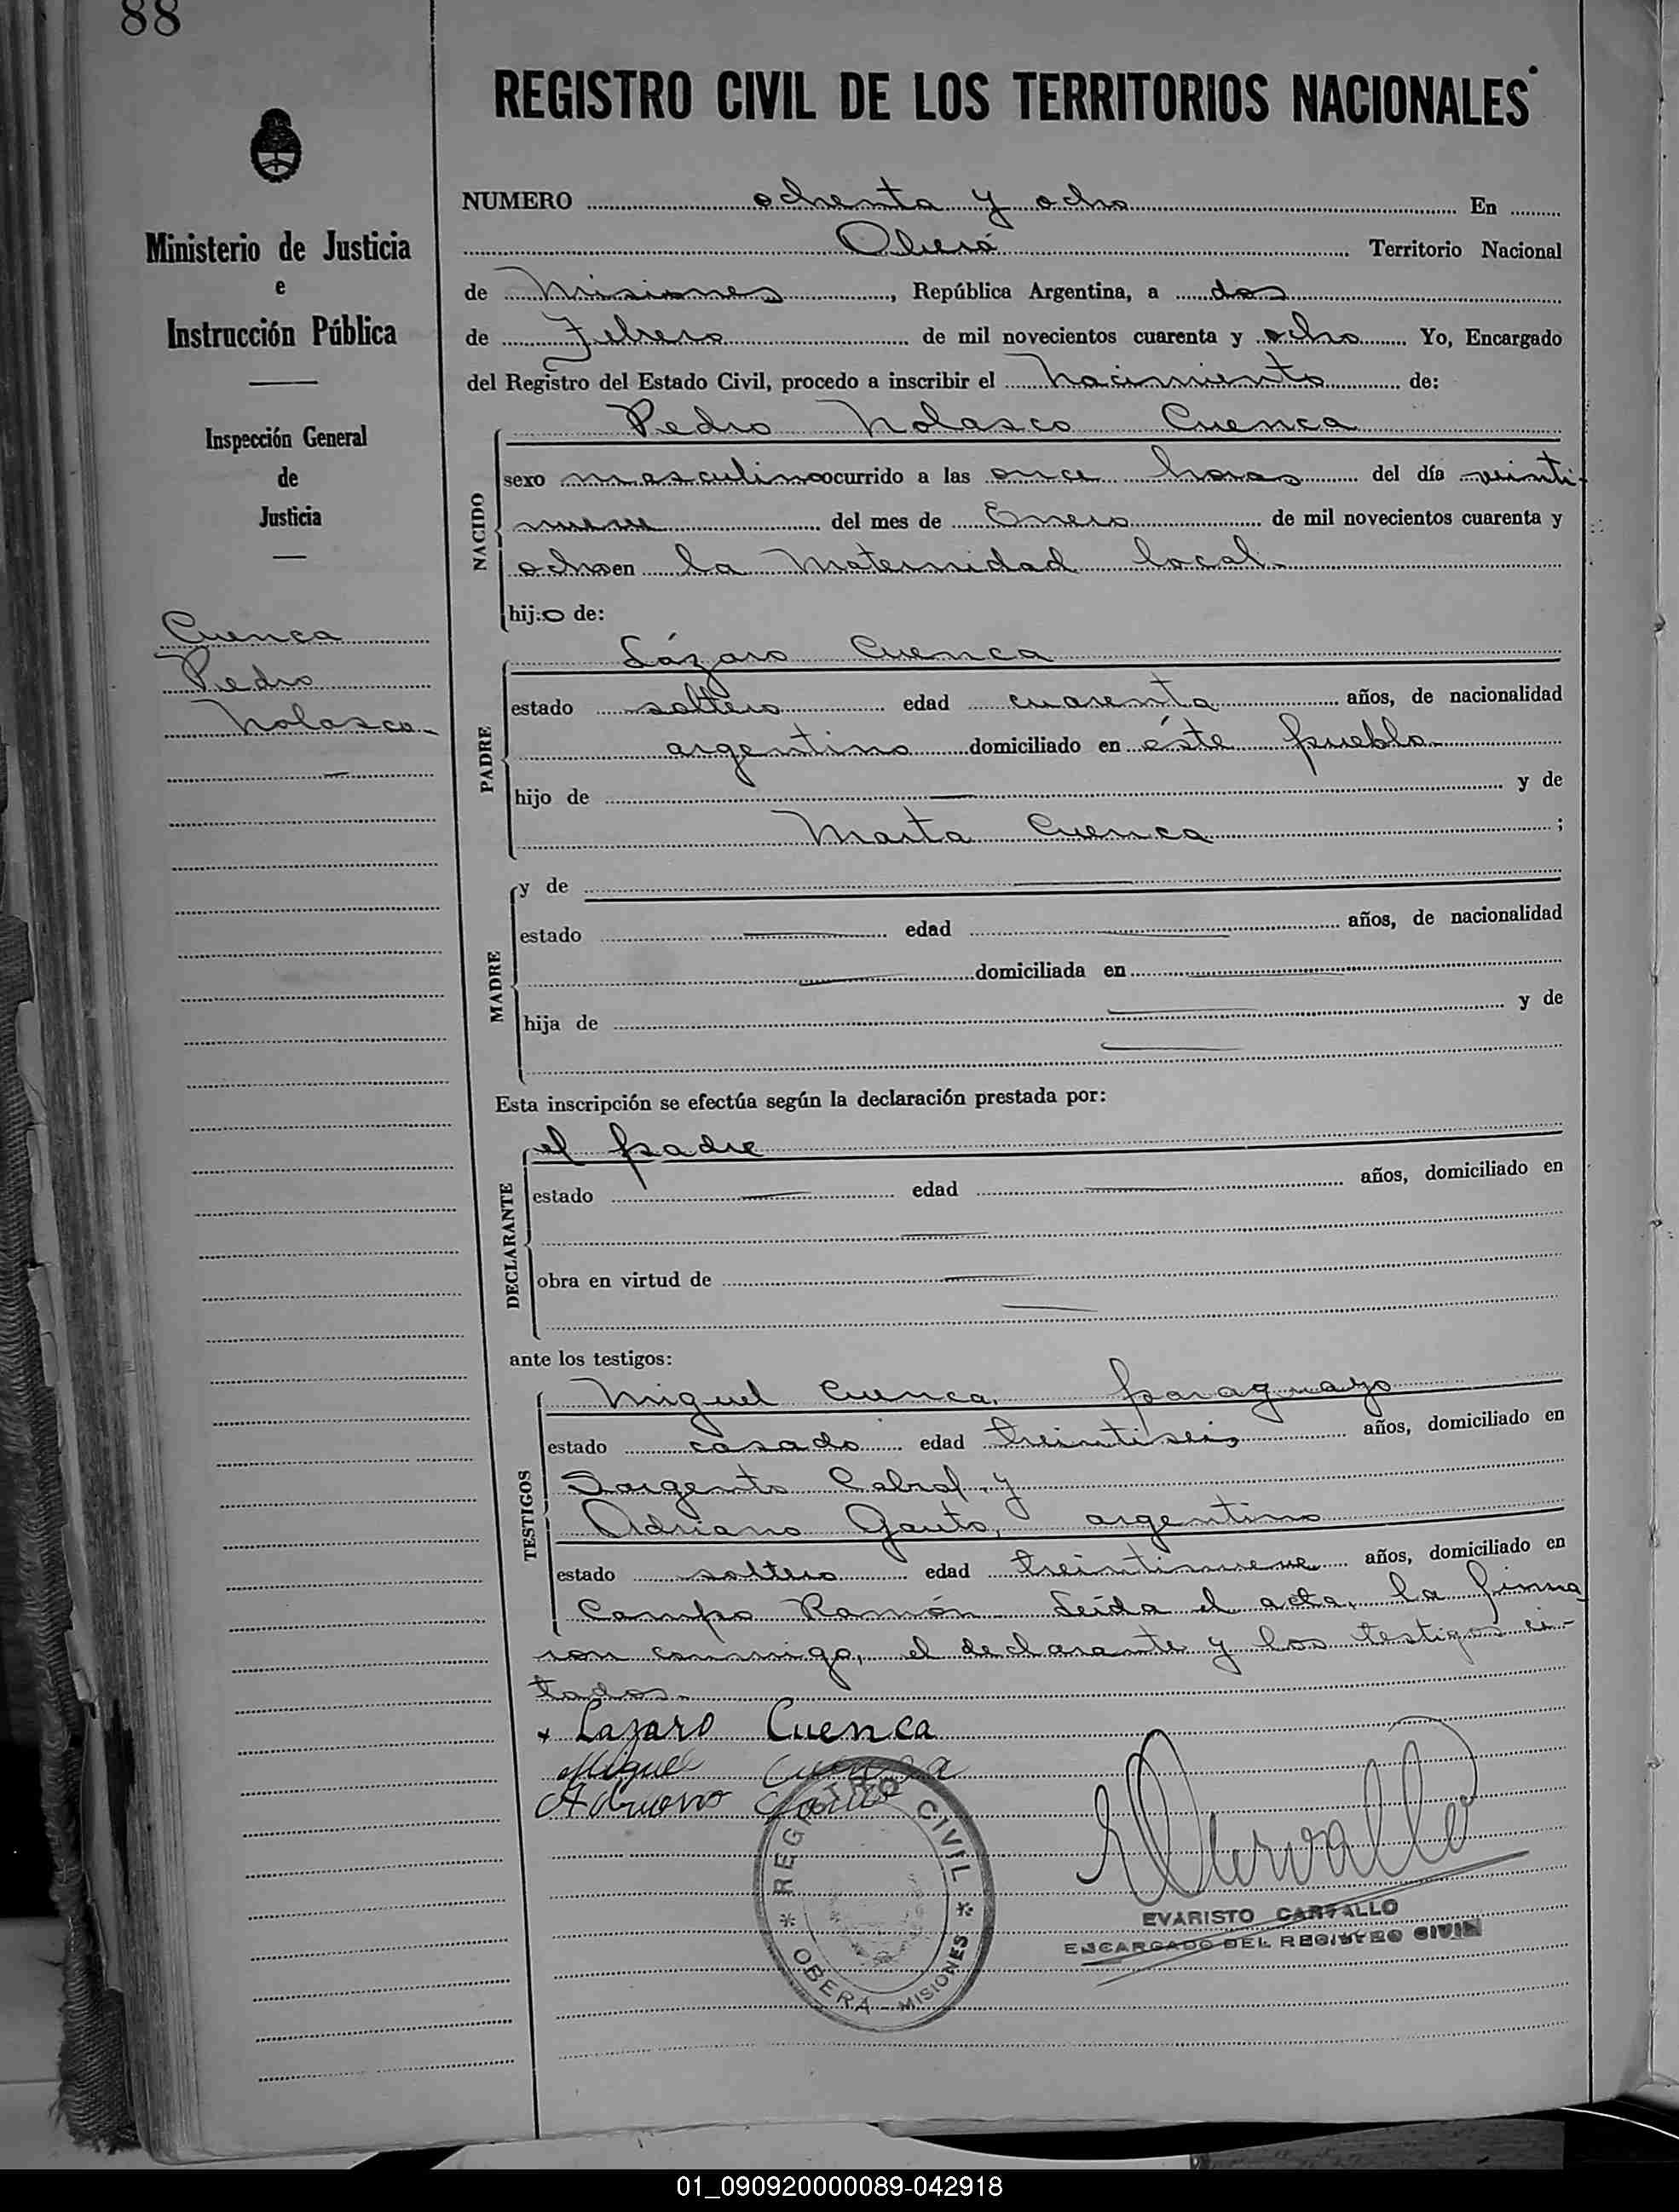 88
REGISTRO CIVIL DE LOS TERRITORIOS NACIONALES
Ministerio de Justicia
e
Instrucción Pública
Inspección General
de
Justicia
Cuenca
Pedro
Nolasco
NUMERO ochenta y ocho En
Oberá Territorio Nacional
de Misiones, República Argentina, a dos
de Febrero de mil novecientos cuarenta y ocho Yo, Encargado
del Registro del Estado Civil, procedo a inscribir el nacimiento de:
NACIDO
Pedro Nolasco Cuenca
sexo masculino ocurrido a las once horas del día veinti-
nueve del mes de Enero de mil novecientos cuarenta y
ocho en la Maternidad local.
hijo de:
PADRE
Lázaro Cuenca
estado soltero edad cuarenta años, de nacionalidad
argentino domiciliado en éste pueblo
hijo de — y de
Marta Cuenca ;
MADRE
y de —
estado — edad — años, de nacionalidad
— domiciliada en —
hija de — y de
—
Esta inscripción se efectúa según la declaración prestada por:
DECLARANTE
el padre
estado — edad — años, domiciliado en
—
obra en virtud de —
—
ante los testigos:
TESTIGOS
Miguel Cuenca, paraguayo
estado casado edad treintiseis años, domiciliado en
Sargento Cabral, y
Adriano Gauto, argentino
estado soltero edad treintinueve años, domiciliado en
Campo Ramón Leída el acta, la firma
ron conmigo, el declarante y los testigos ci-
tados.
Lazaro Cuenca
Miguel Cuenca
Adriano Gauto
REGISTRO CIVIL
OBERA - MISIONES
ECarvallo
EVARISTO CARVALLO
ENCARGADO DEL REGISTRO CIVIL
01_090920000089-042918